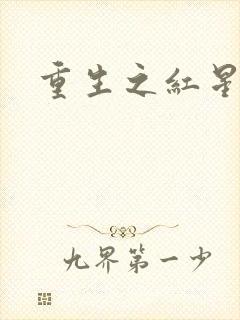 重生之紅星
九界第一少